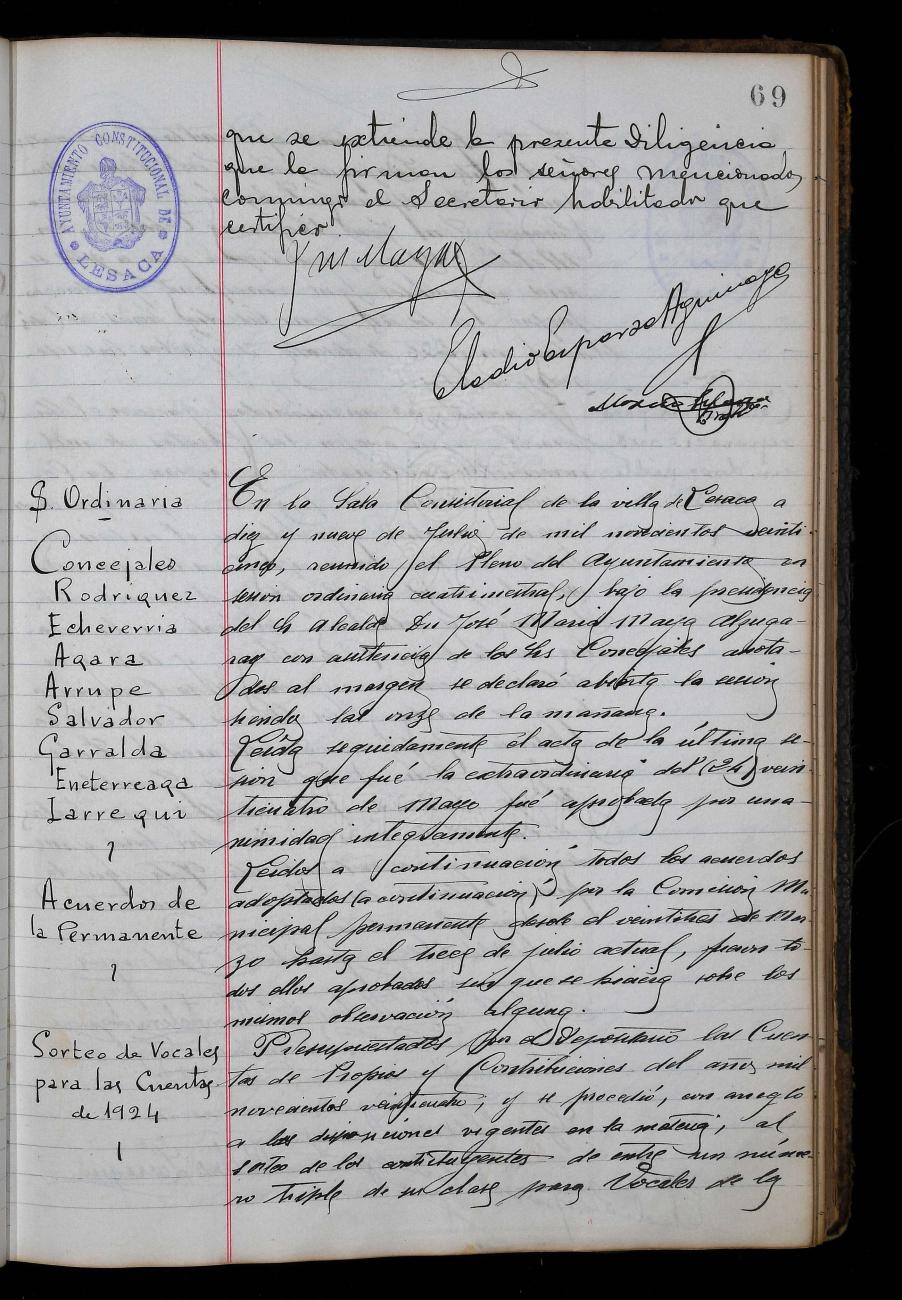 69
AYUNTAMIENTO CONSTITUCIONAL DE
LESACA
que se extiende la presente diligencia
que la firman los señores mencionados
conmigo el Secretario habilitado que
certifico
Eladio Esparza Aguinaga
S. Ordinaria
Concejales
Rodriguez
Echeverria
Agara
Arrupe
Salvador
Garralda
Eneterreaga
Iarrequi
Acuerdos de
la Permanente
Sorteo de Vocales
para las Cuentas
de 1924
En la Sala Consistorial de la villa de Lesaca a
diez y nueve de Julio de mil novecientos veinti-
cinco, reunido el Pleno del Ayuntamiento en
sesion ordinaria cuatrimestral, bajo la presidencia
del Sr Alcalde Dn José Maria Maya Alzuga-
ray con asistencia de los Srs Concejales anota-
dos al margen se declaró abierta la sesion
siendo las onze de la mañana.
Leida seguidamente el acta de la última se-
sion que fué la extraordinaria del (24) vein-
ticuatro de Mayo fué aprobada por una-
nimidad integramente.
Leidos a continuación todos los acuerdos
adoptados (a continuación) por la Comision Mu-
nicipal permanente desde el veintitres de Mar
zo hasta el trece de julio actual, fueron to-
dos ellos aprobados sin que se hiciera sobre los
mismos observación alguna.
Presupuestados por el Depositario las Cuen-
tas de Propios y Contribuciones del año mil
novecientos veinticuatro; y se procedió, con arreglo
a las disposiciones vigentes en la materia, al
sorteo de los contribuyentes de entre un núme-
ro triple de su clase para Vocales de la